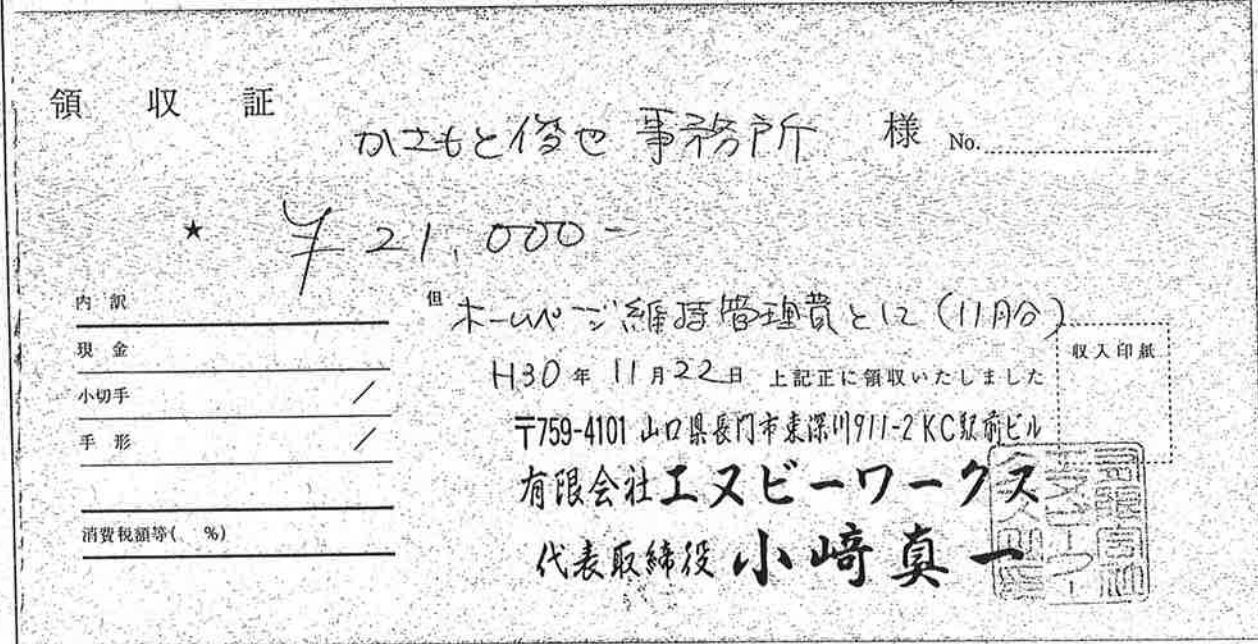 領収証
かさもと俊也 事務所 様 No.
★ ¥21,000-
内訳
現金
小切手 /
手形 /
消費税額等( %)
但 ホームページ維持管理費として(11月分)
収入印紙
H30年11月22日 上記正に領収いたしました
〒759-4101 山口県長門市東深川911-2 KC駅前ビル
有限会社エヌビーワークス
代表取締役 小崎真一